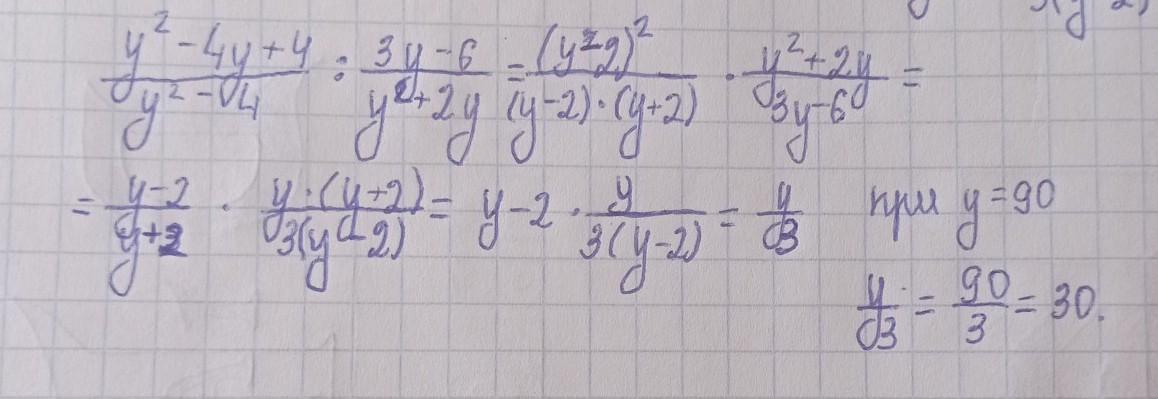 (y² - 4y + 4)/(y² - 4) : (3y - 6)/(y² + 2y) = (y - 2)²/((y - 2)·(y + 2)) · (y² + 2y)/(3y - 6) =
= (y - 2)/(y + 2) · (y·(y + 2))/(3(y - 2)) = y - 2 · y/(3(y - 2)) = y/3 при y = 90
y/3 = 90/3 = 30.